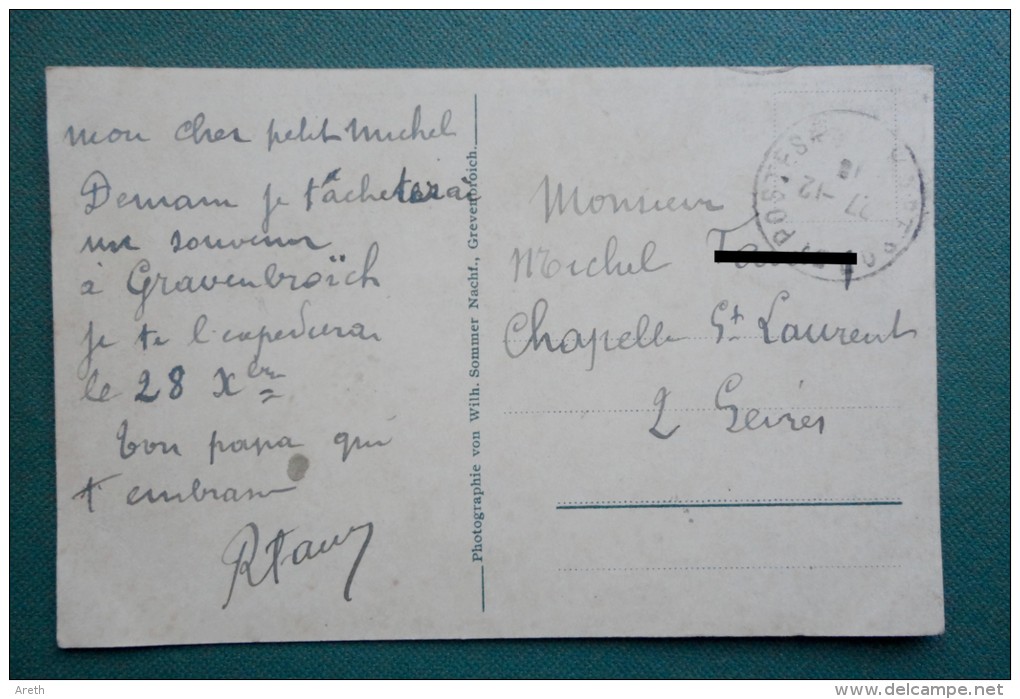 mon cher petit Michel
Demain je t'acheterai
un souvenir
à Gravenbroïch
je te l'expedierai
le 28 Xbre
ton papa qui
t'embrasse
Photographie von Wilh. Sommer Nachf., Grevenbroich.
POSTES
27 -12
Monsieur
Michel
Chapelle St Laurent
2 Sèvres
Areth
www.delcampe.net